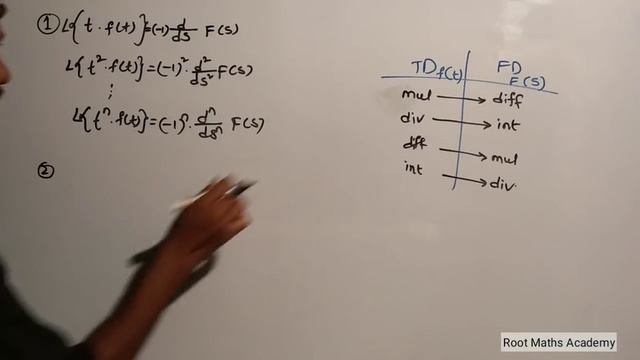 ① L{t·f(t)}=(-1) d/ds F(s)
L{t²·f(t)}=(-1)²·d²/ds² F(s)
⋮
L{tⁿ·f(t)}=(-1)ⁿ·dⁿ/dsⁿ F(s)
②
TD f(t) FD F(s)
mul → diff
div → int
diff → mul
int → div
Root Maths Academy